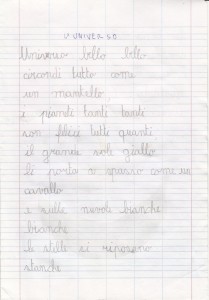 L'UNIVERSO
Universo bello bello
circondi tutto come
un mantello
i pianeti tanti tanti
son felici tutti quanti
il grande sole giallo
li porta a spasso come un
cavallo
e sulle nuvole bianche
bianche
le stelle si riposano
stanche